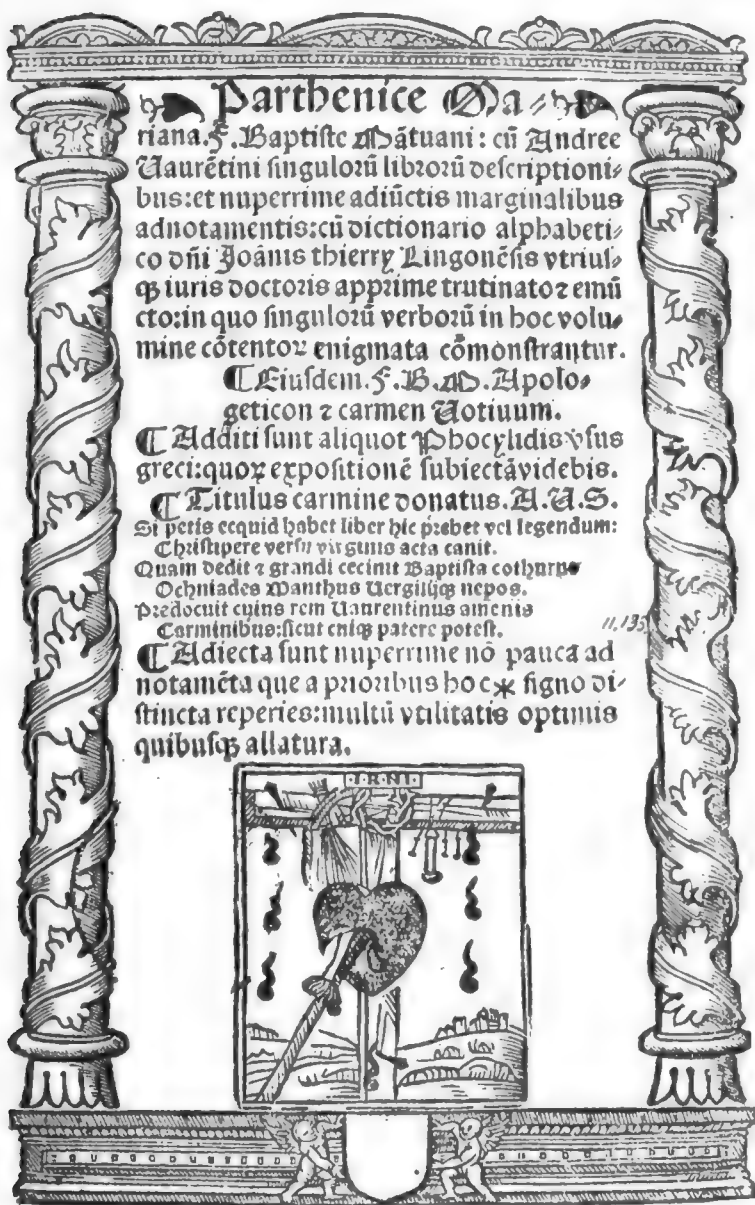 Parthenice Ma⸗
riana. F. Baptiste Mãtuani: cũ Andree
Vaurẽtini ſingulorũ librorũ deſcriptioni⸗
bus: et nuperrime adiũctis marginalibus
adnotamentis: cũ dictionario alphabeti⸗
co dñi Joãnis thierry Lingonẽſis vtriuſ⸗
qꝫ iuris doctoris apprime trutinato ⁊ emũ
cto: in quo ſingulorũ verborũ in hoc volu⸗
mine cõtentoꝝ enigmata cõmonſtrantur.
¶ Eiuſdem. F. B. M. Apolo⸗
geticon ⁊ carmen Votiuum.
¶ Additi ſunt aliquot Phocylidis vſus
greci: quoꝝ expoſitionẽ ſubiectã videbis.
¶ Titulus carmine donatus. A. V. S.
Si petis ecquid habet liber hic prebet vel legendum:
Chriſtipere verſu virginis acta canit.
Quam dedit ⁊ grandi cecinit Baptiſta cothurno
Ochniades Manthus Vergilijqꝫ nepos.
Predocuit cuius rem Vaurentinus amenis
Carminibus: ſicut cuiqꝫ patere poteſt.
11,135
¶ Adiecta ſunt nuperrime nõ pauca ad
notamẽta que a prioribus hoc * ſigno di⸗
ſtincta reperies: multũ vtilitatis optimis
quibuſqꝫ allatura.
I.R.N.I.